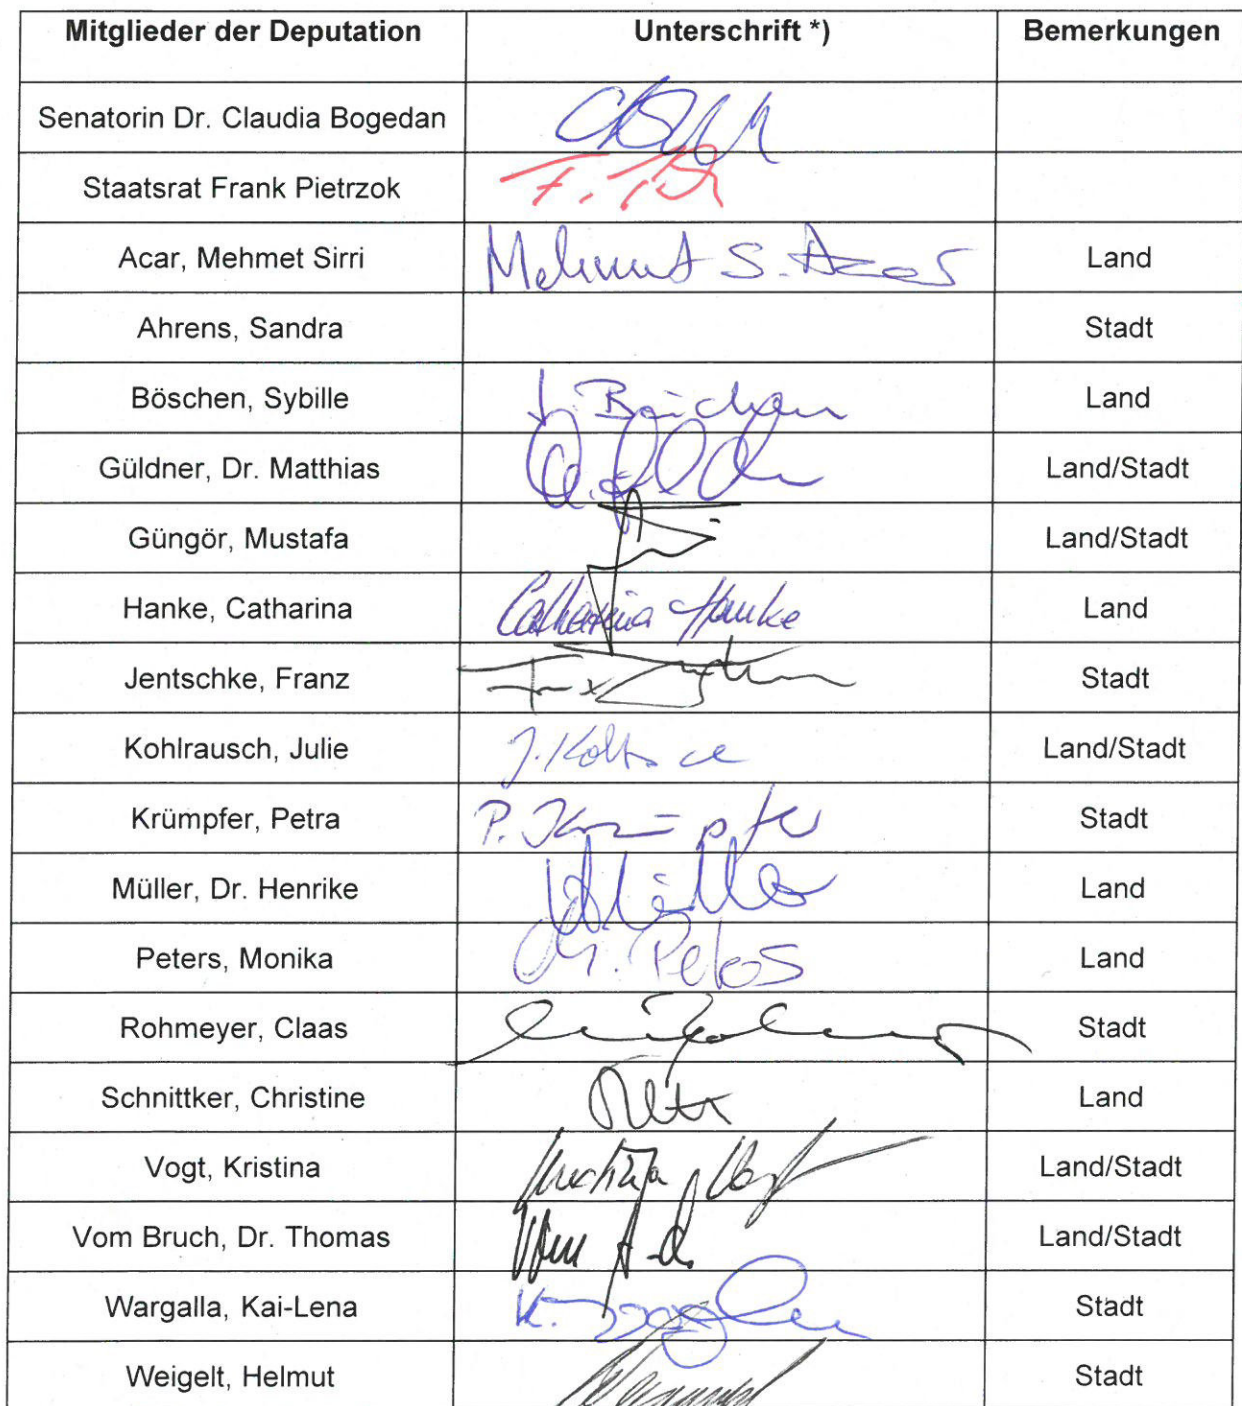 Mitglieder der Deputation Unterschrift *) Bemerkungen
Senatorin Dr. Claudia Bogedan
Staatsrat Frank Pietrzok
Acar, Mehmet Sirri Mehmet S. Acar Land
Ahrens, Sandra Stadt
Böschen, Sybille Land
Güldner, Dr. Matthias Land/Stadt
Güngör, Mustafa Land/Stadt
Hanke, Catharina Catharina Hanke Land
Jentschke, Franz Stadt
Kohlrausch, Julie Land/Stadt
Krümpfer, Petra P. Krümpfer Stadt
Müller, Dr. Henrike Land
Peters, Monika M. Peters Land
Rohmeyer, Claas Stadt
Schnittker, Christine Land
Vogt, Kristina Kristina Vogt Land/Stadt
Vom Bruch, Dr. Thomas Land/Stadt
Wargalla, Kai-Lena Stadt
Weigelt, Helmut Stadt